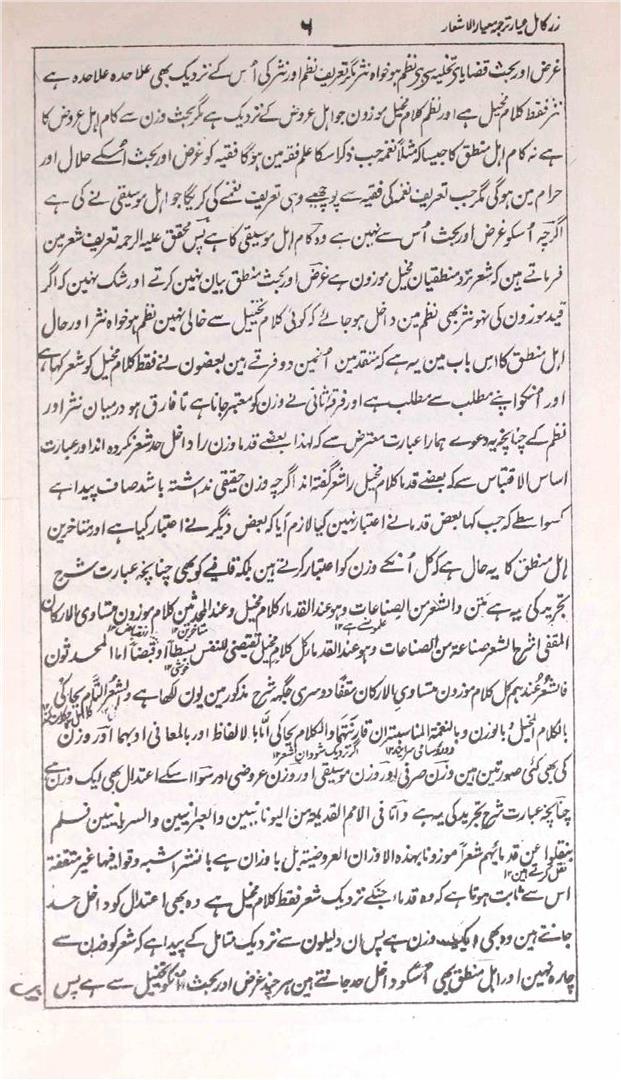 زر کامل عیار ترجمہ معیار الاشعار
۶
غرض اور بحث قضایای تخییلیہ سے ہی نظم ہو خواہ نثر مگر تعریف نظم اور نثر کی اُس کے نزدیک بھی علاحدہ علاحدہ ہے
نثر فقط کلام مخیل ہے اور نظم کلام مخیل موزون جو اہل عروض کے نزدیک ہے مگر بحث وزن سے کام اہل عروض کا
ہے نہ کام اہل منطق کا جیسا کہ مثلاً نغمہ جب ذکر اسکا علم فقہ مین ہوگا فقیہ کو غرض اور بحث اُسکے حلال اور
حرام مین ہوگی مگر جب تعریف نغمہ کی فقیہ سے پوچھیے وہی تعریف نغمے کی کریگا جو اہل موسیقی نے کی ہے
اگرچہ اُسکو غرض اور بحث اُس سے نہین ہے وہ کام اہل موسیقی کا ہے پس محقق علیہ الرحمہ تعریف شعر مین
فرماتے ہین کہ شعر نزد منطقیان مخیل موزون ہے غرض اور بحث منطق بیان نہین کرتے اور شک نہین کہ اگر
قید موزون کی نہو نثر بھی نظم مین داخل ہو جائے کہ کوئی کلام تخییل سے خالی نہین نظم ہو خواہ نثر اور حال
اہل منطق کا اس باب مین یہ ہے کہ متقدمین اُنمین دو فرقے ہین بعضون نے فقط کلام مخیل کو شعر کہا ہے
اور اُنکو اپنے مطلب سے مطلب ہے اور فرقۂ ثانی نے وزن کو معتبر جانا ہے تا فارق ہو درمیان نثر اور
نظم کے چنانچہ یہ دعوے ہمارا عبارت معترض سے کہ لہذا بعضے قدما وزن را داخل حد شعر نکرده اند اور عبارت
اساس الاقتباس سے کہ بعضے قدما کلام مخیل را شعر گفتہ اند اگرچہ وزن حقیقی نداشتہ باشد صاف پیدا ہے
کسواسطے کہ جب کہا بعض قدما نے اعتبار نہین کیا لازم آیا کہ بعض دیگر نے اعتبار کیا ہے اور متاخرین
اہل منطق کا یہ حال ہے کہ کل اُنکے وزن کو اعتبار کرتے ہین بلکہ قافیے کو بھی چنانچہ عبارت شرح
تجرید کی یہ ہے متن والشعر من الصناعات وہو عند القدماء کلام مخیل وعند المحدثین کلام موزون متساوی الارکان
المقفی شرح الشعر صناعة من الصناعات وہو عند القدماء کل کلام مخیل تقتضی للنفس بسطاً او قبضاً اما المحدثون
فالشعر عندہم کل کلام موزون متساوی الارکان مقفا دوسری جگہہ شرح مذکور مین یون لکھا ہے والشعر التام یحاکی
بالکلام المخیل وبالوزن وبالنغمة المناسبة ان قارنتهما والکلام یحاکی اما بالالفاظ اور بالمعانی او بهما اور وزن
کی بھی کئی صورتین ہین وزن صرفی اور وزن موسیقی اور وزن عروضی اور سوا اسکے اعتدال بھی ایک وزن ہے
چنانچہ عبارت شرح تجرید کی یہ ہے واما فی الامم القدیمة من الیونانیین والعبرانیین والسریانیین فلم
ینقلوا عن قدمائهم شعراً موزونا بهذه الاوزان العروضیة بل باوزان ہے بالنثر اشبه وقوافیها غیر متفقة
اس سے ثابت ہوتا ہے کہ وہ قدماء جنکے نزدیک شعر فقط کلام مخیل ہے وہ بھی اعتدال کو داخل حد
جانتے ہین وہ بھی ایک وزن ہے پس ان دلیلون سے نزدیک متامل کے پیدا ہے کہ شعر کو وزن سے
چارہ نہین اور اہل منطق بھی اُسکو داخل حد جانتے ہین ہرچند غرض اور بحث اُنکو تخییل سے ہے پس